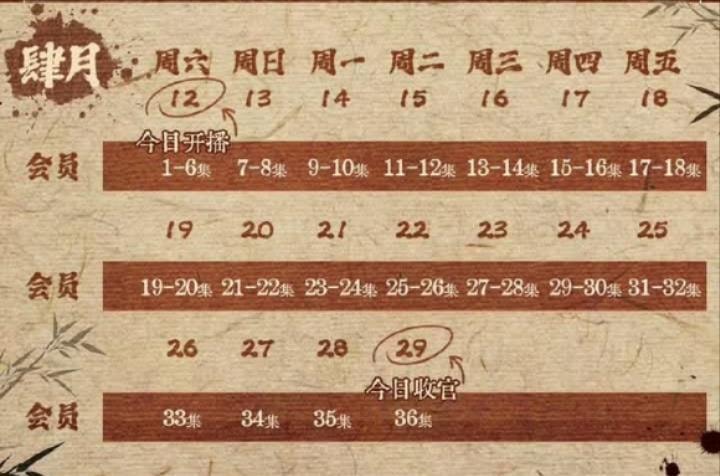 肆月
周六 周日 周一 周二 周三 周四 周五
12 13 14 15 16 17 18
今日开播
会员 1-6集 7-8集 9-10集 11-12集 13-14集 15-16集 17-18集
19 20 21 22 23 24 25
会员 19-20集 21-22集 23-24集 25-26集 27-28集 29-30集 31-32集
26 27 28 29
今日收官
会员 33集 34集 35集 36集